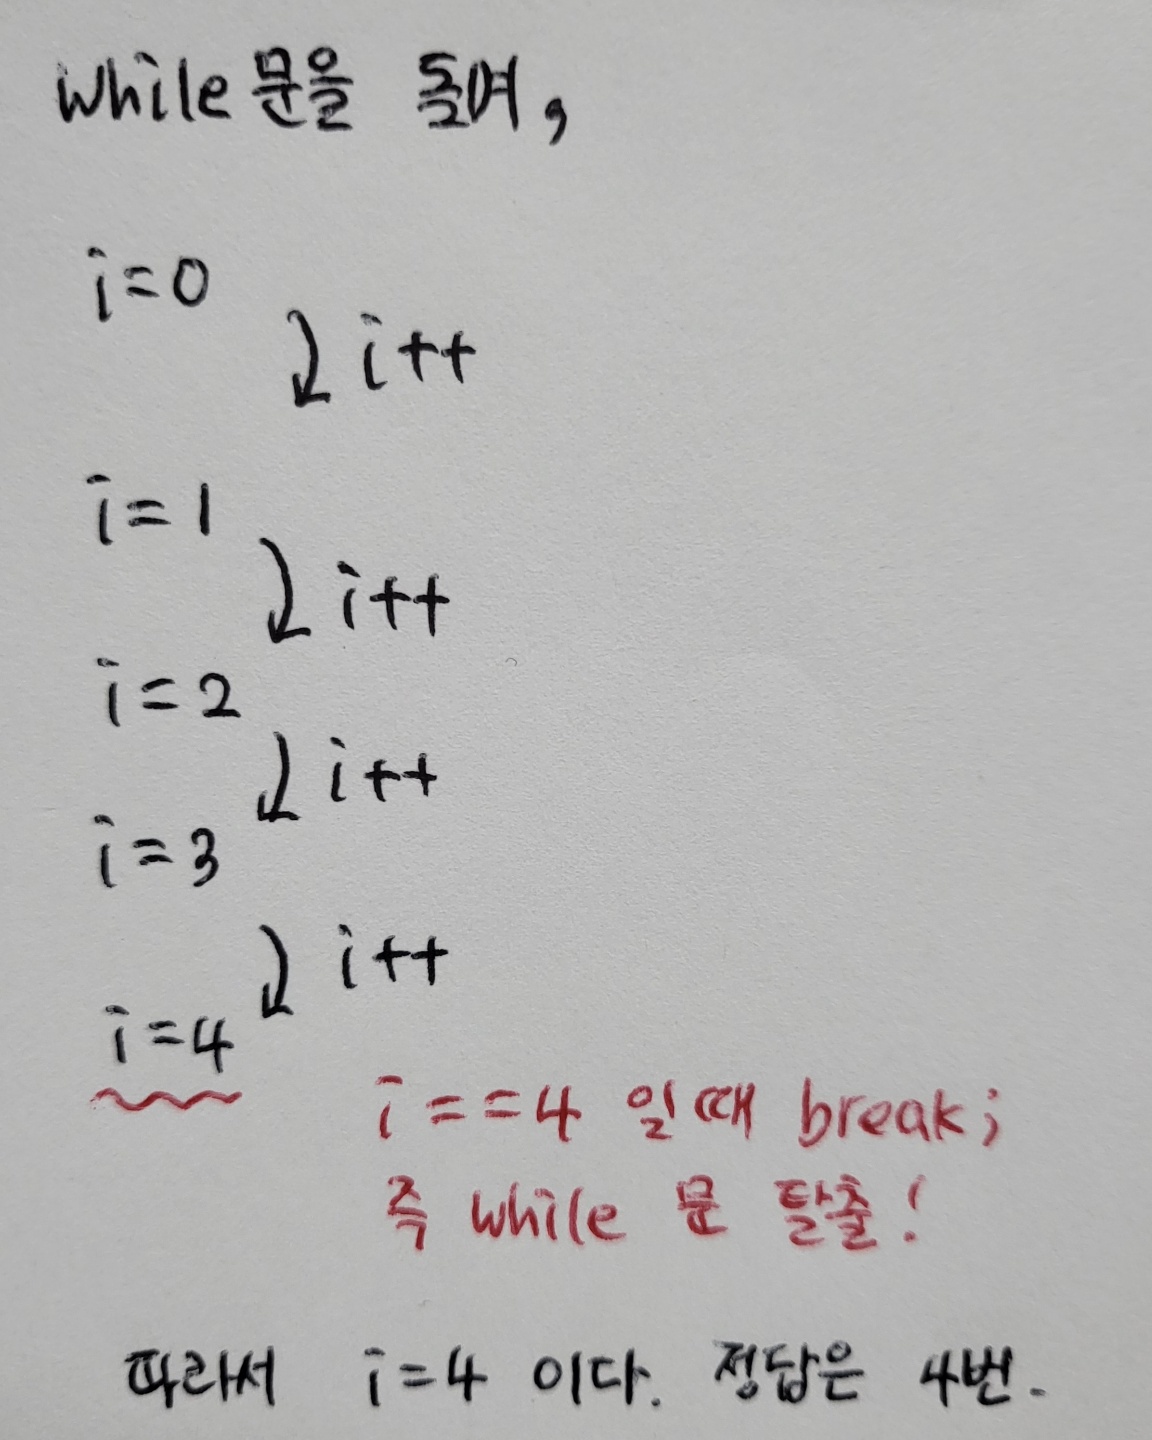 while문을 돌며,
i=0
i++
i=1
i++
i=2
i++
i=3
i++
i=4
i==4 일때 break;
즉 while 문 탈출!
따라서 i=4 이다. 정답은 4번.